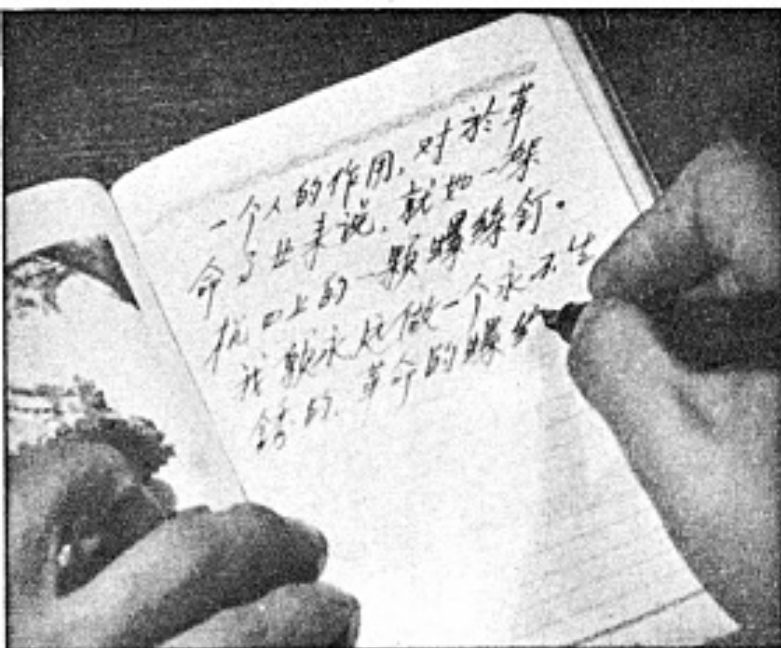 一个人的作用，对於革
命事业来说，就如一架
机口上的一颗螺絲钉。
我愿永远做一个永不生
锈的、革命的螺丝